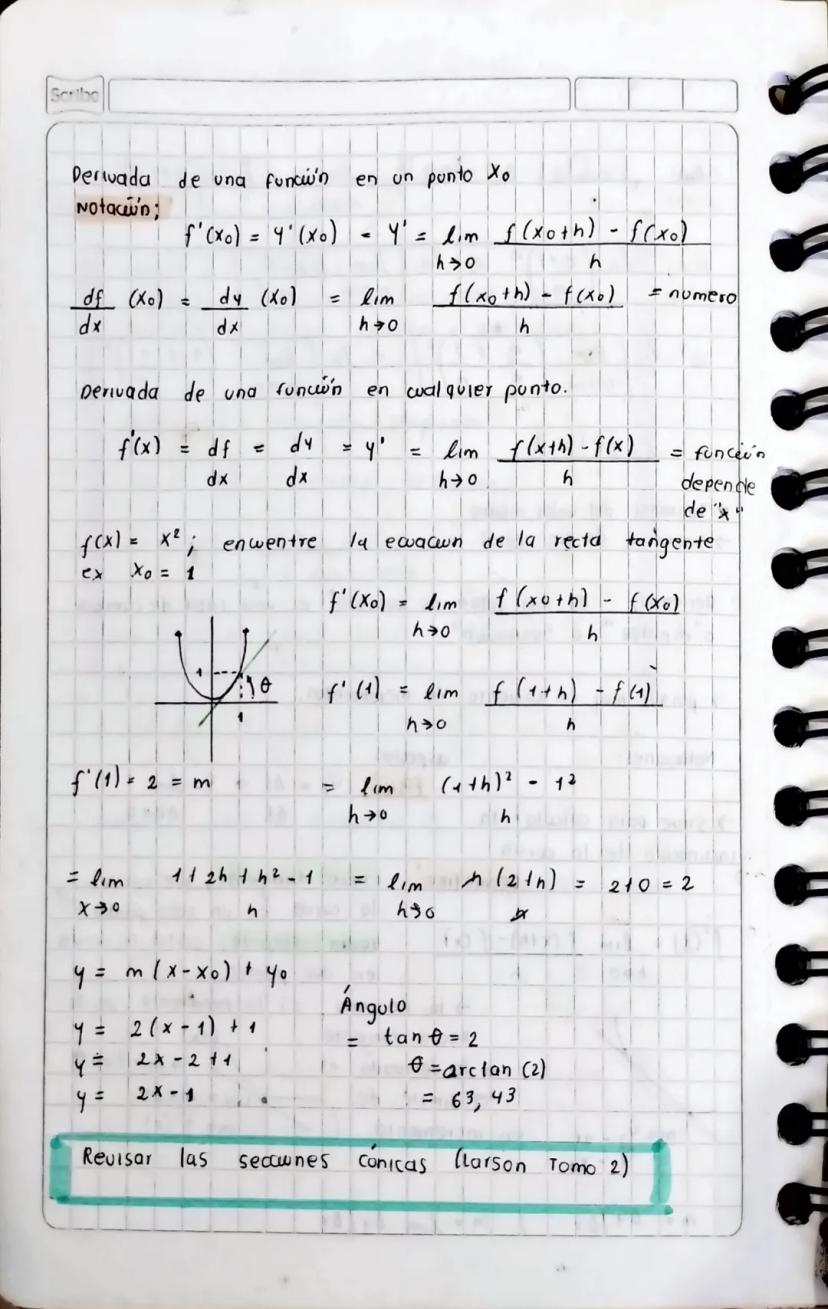 Scribe
Derivada de una función en un punto x₀
Notación;
f'(x₀) = y'(x₀) = y' = lim h→0 f(x₀+h) - f(x₀) / h
df/dx (x₀) = dy/dx (x₀) = lim h→0 f(x₀+h) - f(x₀) / h = numero
Derivada de una función en cualquier punto.
f'(x) = df/dx = dy/dx = y' = lim h→0 f(x+h) - f(x) / h = función
depende
de "x"
f(x) = x²; encuentre la ecuacion de la recta tangente
ex x₀ = 1
f'(x₀) = lim h→0 f(x₀+h) - f(x₀) / h
1 θ
1
f'(1) = lim h→0 f(1+h) - f(1) / h
f'(1) = 2 = m = lim h→0 (1+h)² - 1² / h
= lim x→0 1+2h+h²-1 / h = lim h→0 h(2+h) / h = 2+0 = 2
y = m(x-x₀) + y₀
Ángulo
y = 2(x-1) + 1
= tan θ = 2
y = 2x-2+1
θ = arctan (2)
y = 2x-1
= 63,43
Revisar las secciones cónicas (Larson Tomo 2)